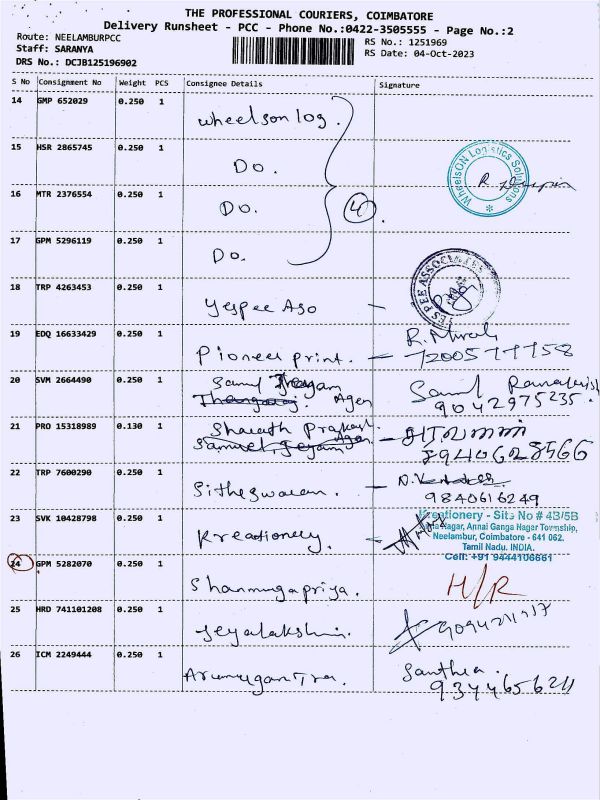 THE PROFESSIONAL COURIERS, COIMBATORE
Delivery Runsheet - PCC - Phone No.:0422-3505555 - Page No.:2
Route: NEELAMBURPCC
Staff: SARANYA
DRS No.: DCJB125196902
RS No.: 1251969
RS Date: 04-Oct-2023
S No Consignment No Weight PCS Consignee Details Signature
14 GMP 652029 0.250 1 Wheelson log.
15 HSR 2865745 0.250 1 Do.
WheelsON Logistics Solutions
16 MTR 2376554 0.250 1 Do. 4
17 GPM 5296119 0.250 1 Do.
18 TRP 4263453 0.250 1 Yespee Aso -
YES PEE ASSOCIATES
19 EDQ 16633429 0.250 1 Pioneer print. - R. Murali
7200577758
20 SVM 2664490 0.250 1 Samuel Jeyam
Agen
Samuel
9042975235.
21 PRO 15318989 0.130 1 Sharath Prakash.
Samuel Jeyam Agen
8940628566
22 TRP 7600290 0.250 1 Sitheswaran. - N.
9840616249
23 SVK 10428798 0.250 1 Kreationery. -
Kreationery - Site No # 4B/5B
Nagar, Annai Ganga Nager Township,
Neelambur, Coimbatore - 641 062.
Tamil Nadu. INDIA.
Cell: +91 9444106661
24 GPM 5282070 0.250 1 Shanmugapriya. H/R
25 HRD 741101208 0.250 1 Jeyalakshmi.
26 ICM 2249444 0.250 1
Santhia.
9344656211